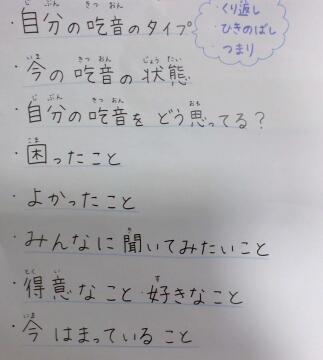 ・自分の吃音のタイプ
・くり返し
・ひきのばし
・つまり
・今の吃音の状態
・自分の吃音をどう思ってる?
・困ったこと
・よかったこと
・みんなに聞いてみたいこと
・得意なこと・好きなこと
・今はまっていること